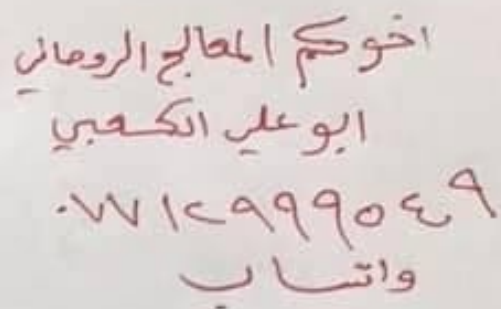 اخوكم المعالج الروحاني
ابو علي الكعبي
٠٧٧١٢٩٩٩٥٤٩
واتساب